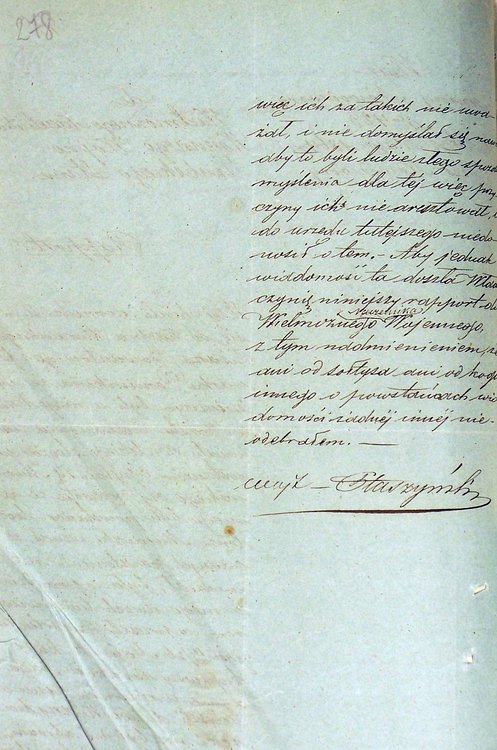 278
więc ich za takich nie uwa
żał, i nie domyślał się naw
aby to byli ludzie złego sposo
myślenia dla tej więc przy
czyny ich nie aresztował,
do urzędu tutejszego niedo
nosił o tem. – Aby jednak
wiadomość ta doszła Wład
czynię niniejszy rapport do
Naczelnika
Wielmożnego Wojennego,
z tym nadmienieniem, że
ani od sołtysa ani od kogo
innego o powstańcach wia
domości żadnéj innéj nie-
odebrałem. —
Wójt – Staszyński